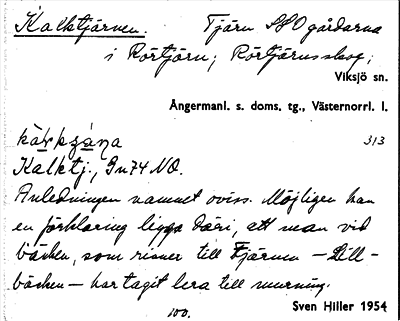 Kalktjärnen. Tjärn SSO gårdarna
i Rörtjärn; Rörtjärnsskog;
Viksjö sn.
Ångermanl. s. doms. tg., Västernorrl. l.
313
Kalktj., Gn 74 NO.
Anledningen namnet oviss. Möjligen kan
en förklaring ligga däri, att man vid
bäcken, som rinner till Tjärnen – Lill-
bäcken – har tagit lera till murning.
100.
Sven Hiller 1954